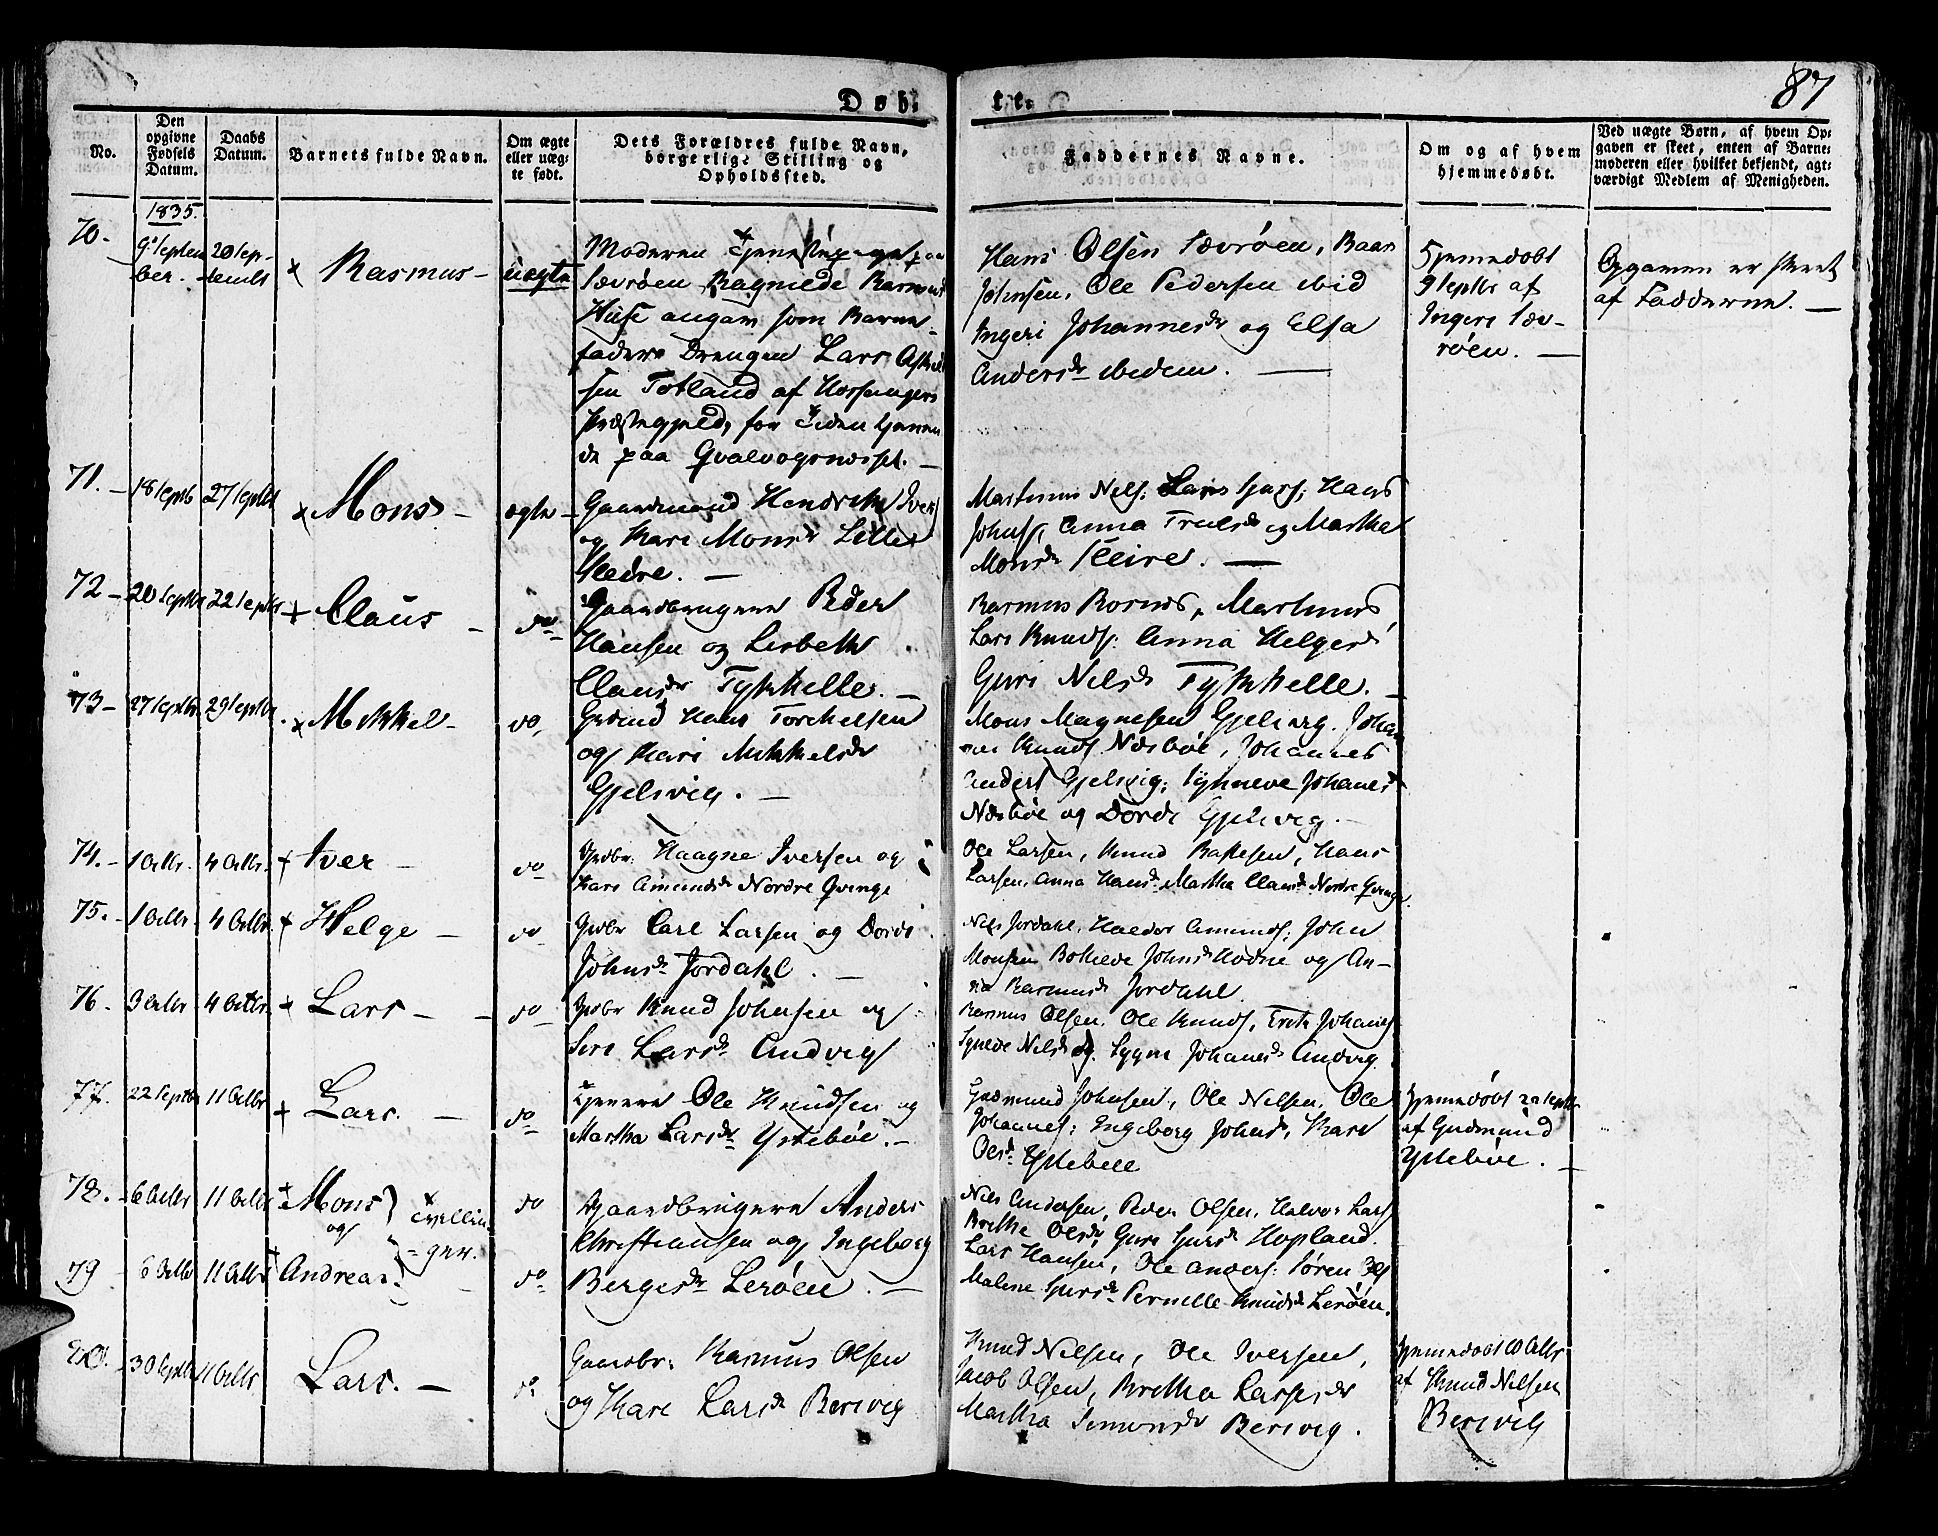 87
Døb-
te.
No.
Den opgivne Fødsels Datum.
Daabs Datum.
Barnets fulde Navn.
Om ægte eller uæg- te født.
Dets Forældres fulde Navn, borgerlige Stilling og Opholdssted.
Faddernes Navne.
Om og af hvem hjemmedøbt.
Ved uægte Børn, af hvem Op- gaven er skeet, enten af Barne- moderen eller hvilket bekjendt, agt- værdigt Medlem af Menigheden.
1835.
70.
9de Septem
ber.
20 Sep-
tembr
Rasmus -
uægte
Moderen
Sævröen Ragnilde Rasmus
Huse angav som Barne-
fader Drengen Lars
sen Totland af Hossangers
Præstegjeld, for Tiden tjenen
de paa Qvalvogsnæsset. -
Hans Olsen Sævröen, Baar
Johnsen, Ole Pedersen ibid
Ingeri Johannesdr og Elsa
Andersdr ibidem. -
Hjemedøbt
9 Septbr af
Ingeri Sæv-
röen. -
Opgaven er skeet
af Fadderne. -
71. - 18 Septb 27 Septbr
Mons -
ægte -
Gaardmand Hendrik Ivers
og Kari Monsdr Lille
-
Martinus Nels: Lars Hans
Johnss, Anna Trulsdr og Martha
Monsdr -
72 - 20 Septbr 22 Septbr
Claus -
do
Gaardbrugere Peder
Hansen og Lisbeth
Clausdr Tykhelle. -
Rasmus Martinus
Lars Knuds: Anna Helges
Guri Nelsdr Tykhelle. -
73 - 27 Septbr 29 Septbr.
Mikkel -
do
Grdmd Hans Torkelsen
og Kari Mikkelsdr
Gjelsvig. -
Mons Magnesen Gjelsvig. Johan
nes Knuds Næsböe, Johannes
Anders Gjelsvig, Synneve Johanes
Næsböe og Dorde Gjelsvig -
74. - 1 Octbr. 4 Octbr.
Iver -
do
Grdbr: Haagne Iversen og
Kari Amundsdr Nordre Qvinge
Ole Larsen, Knud Hans
Larsen, Anna Hansdr Martha Clausdr Nordre Qvinge.
75. - 1 Octbr 4 Octbr
Helge -
do
Grdbr Carl Larsen og Dorde
Johnsdr Jordahl. -
Nels Jordahl, Haldor Amunds: John
Monsen Botheve Johnsdr og An-
na Rasmusdr Jordahl.
76. 3 Octbr 4 Octbr.
Lars -
do
Grdbr Knud Johnsen og
Siri Larsdr Andvig
Rasmus Olsen. Ole Knuds, Johans
Syneve Nelsdr og Johanesdr Andvig.
77. 22 Septbr 11 Octbr
Lars. -
do
Tjenere Ole Knudsen og
Martha Larsdr Ystebøe. -
Gudmund Johnsen, Ole Nelsen, Ole
Johannes: Ingeborg Johnsdr, Kari
Olsdr
Hjemedøbt Septbr
af Gudmund
Ystebøe. -
78. - 6 Octbr 11 Octbr
Mons
og
Tvillin-
ger.
do
Gaardbrugere Anders
Christiansen og Ingeborg
Nils Andersen, Peder Olsen, Halvor Lars
Brithe Olsdr, Guri Hopland.
79 6 Octbr 11 Octbr
Andreas.
do
Bergesdr Leröen. -
Lars Hansen, Ole Anders: Sören
Malene Pernille Knudsdr Leröen.
80. - 30 Septbr 11 Octbr
Lars. -
do
Gaardbr: Rasmus Olsen
og Kari Larsdr Bersvig
Knud Nelsen, Ole Iversen,
Jacob Olsen, Bretha Larsesdr
Martha Simonsdr Bersvig.
Hjemedøbt 10 Octbr
af Knud Nelsen
Bersvig